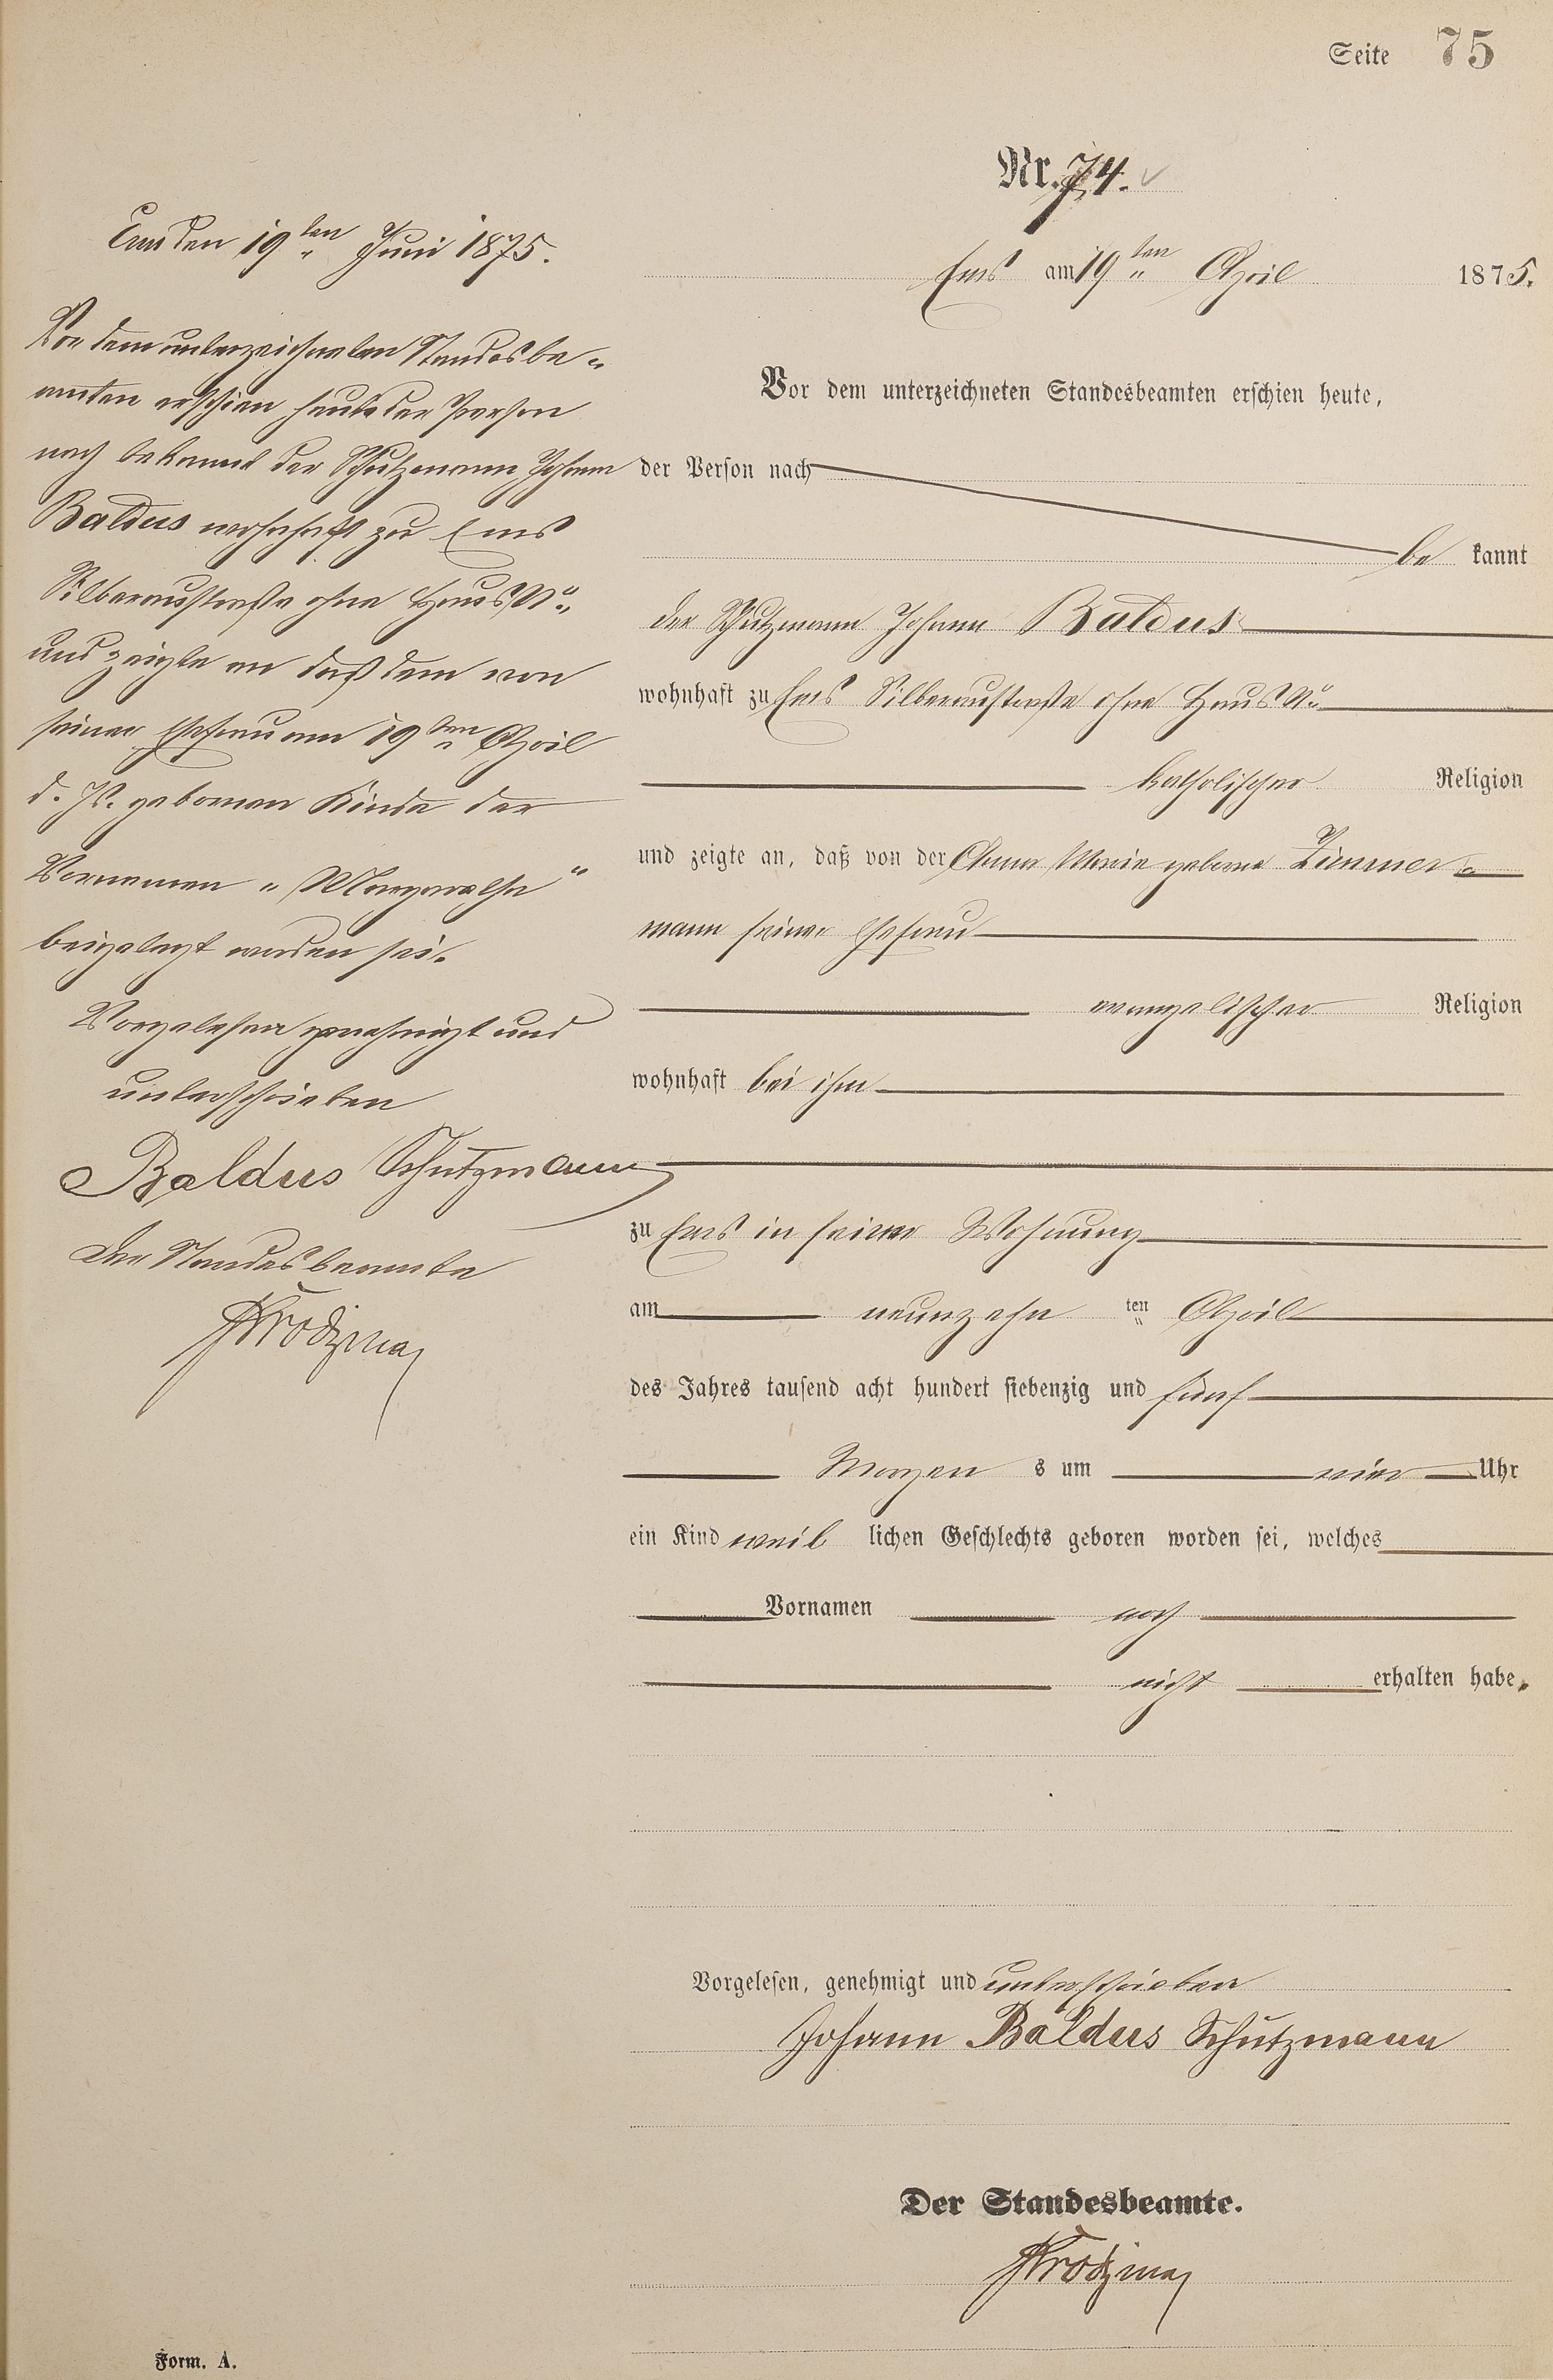 Seite 75
Nr. 74.
Ems den 19ten Juni 1875.
Vor dem unterzeichneten Standesbe-
amten erschien heute der Person
nach bekannt der Schutzmann Johann
Baldus wohnhaft zu Ems
Silberaustraße ohne Haus No.
und zeigte an daß dem von
seiner Ehefrau am 19ten April
d. Js. geborenen Kinde der
Vornamen „Margarethe"
beigelegt worden sei.
Vorgelesen genehmigt und
unterschrieben
Baldus Schutzmann
Der Standesbeamte
Ems am 19ten April 1875.
Vor dem unterzeichneten Standesbeamten erschien heute,
der Person nach
be kannt
der Schutzmann Johann Baldus
wohnhaft zu Ems Silberaustraße ohne Haus No.
katholischer Religion
und zeigte an, daß von der Anna Maria geborene Zimmer-
mann seiner Ehefrau
evangelischer Religion
wohnhaft bei ihm
zu Ems in seiner Wohnung
am neunzehn ten April
des Jahres tausend acht hundert siebenzig und fünf
Morgen s um vier Uhr
ein Kind weib lichen Geschlechts geboren worden sei, welches
Vornamen noch
nicht erhalten habe.
Vorgelesen, genehmigt und unterschrieben
Johann Baldus Schutzmann
Der Standesbeamte.
Form. A.